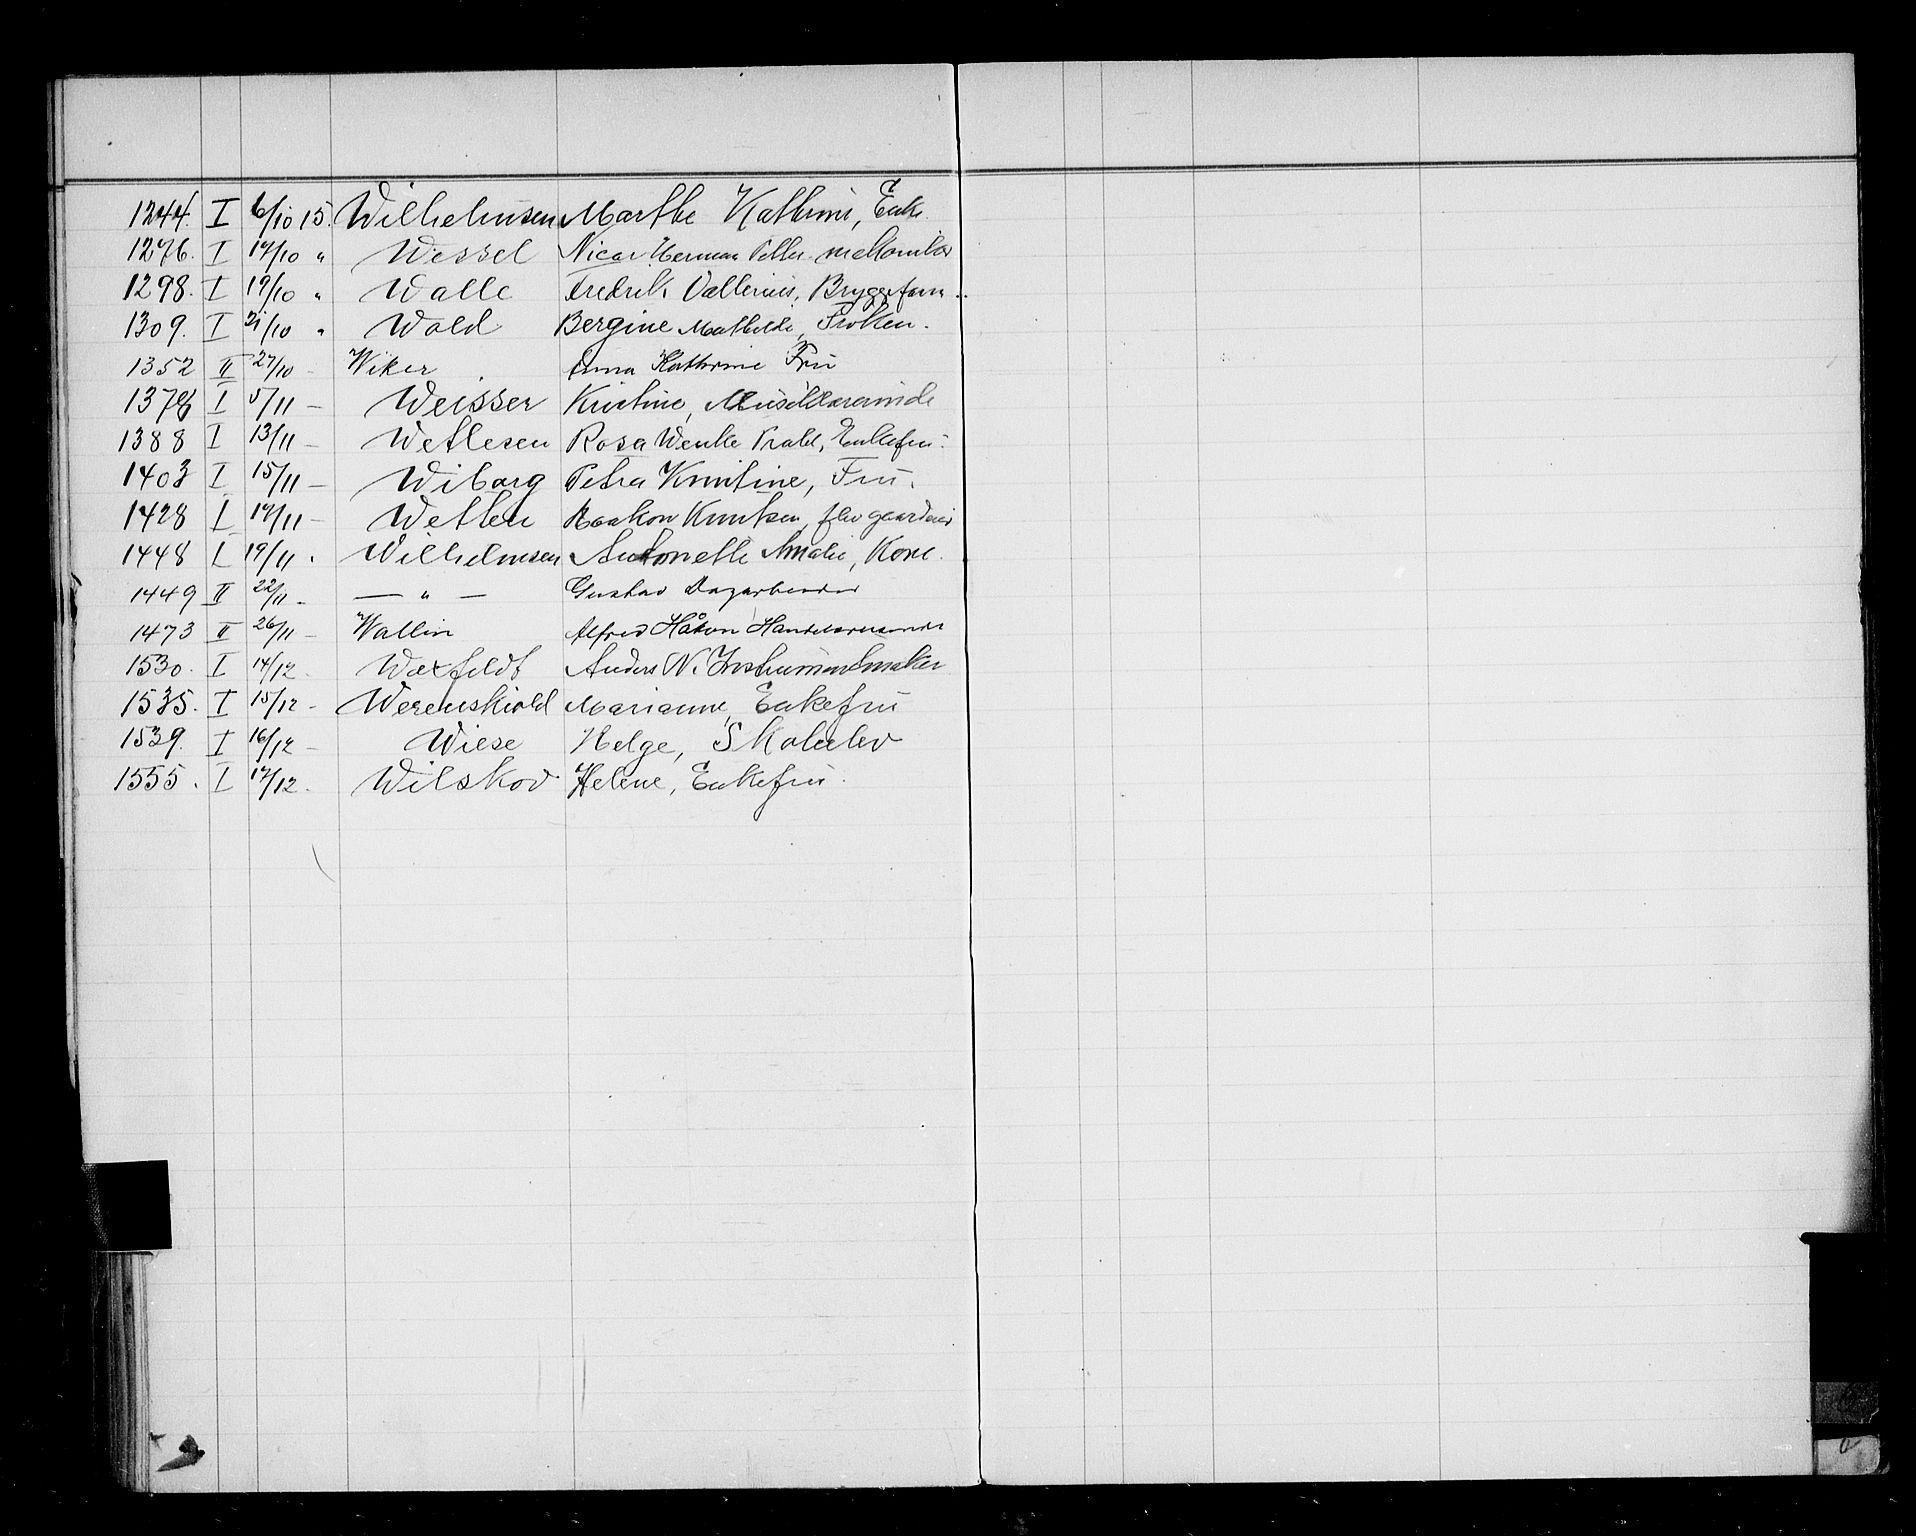 1244. I 6/10 15. Wilhelmsen Marthe Kathrine, Enke.
1276. I 14/10 " Wessel Nicar Herman Peller
1298. I 19/10 " Walle Fredrik Vallerius, Bryggeform
1309. I 21/10 " Wold Bergine Mathilde, Frøken.
1352 II 27/10 - Wiker Anna Kathrine Fru
1378 I 5/11 - Weisser Kristine, Musiklærerinde
1388 I 13/11 - Wetlesen Rosa Wenke Enkefru.
1403 I 15/11 - Wiborg Petra Kristine, Fru.
1428 I 17/11 - Wetlen Haakon Knutsen, gaardeier
1448 I 19/11 . Wilhelmsen Antonette Amalie, Kone.
1449 II 22/11 - — " — Gustav Dagarbeider
1473 II 26/11 - Wallin Alfred Håkon Handelsreisende
1530. I 14/12 . Waxfeldt Anders N. Instrumentmaker
1535. I 15/12 - Werenskiold Marianne, Enkefru
1539. I 16/12 - Wiese Helge, Skoleelev
1555. I 17/12 . Wilskov Helene, Enkefru.